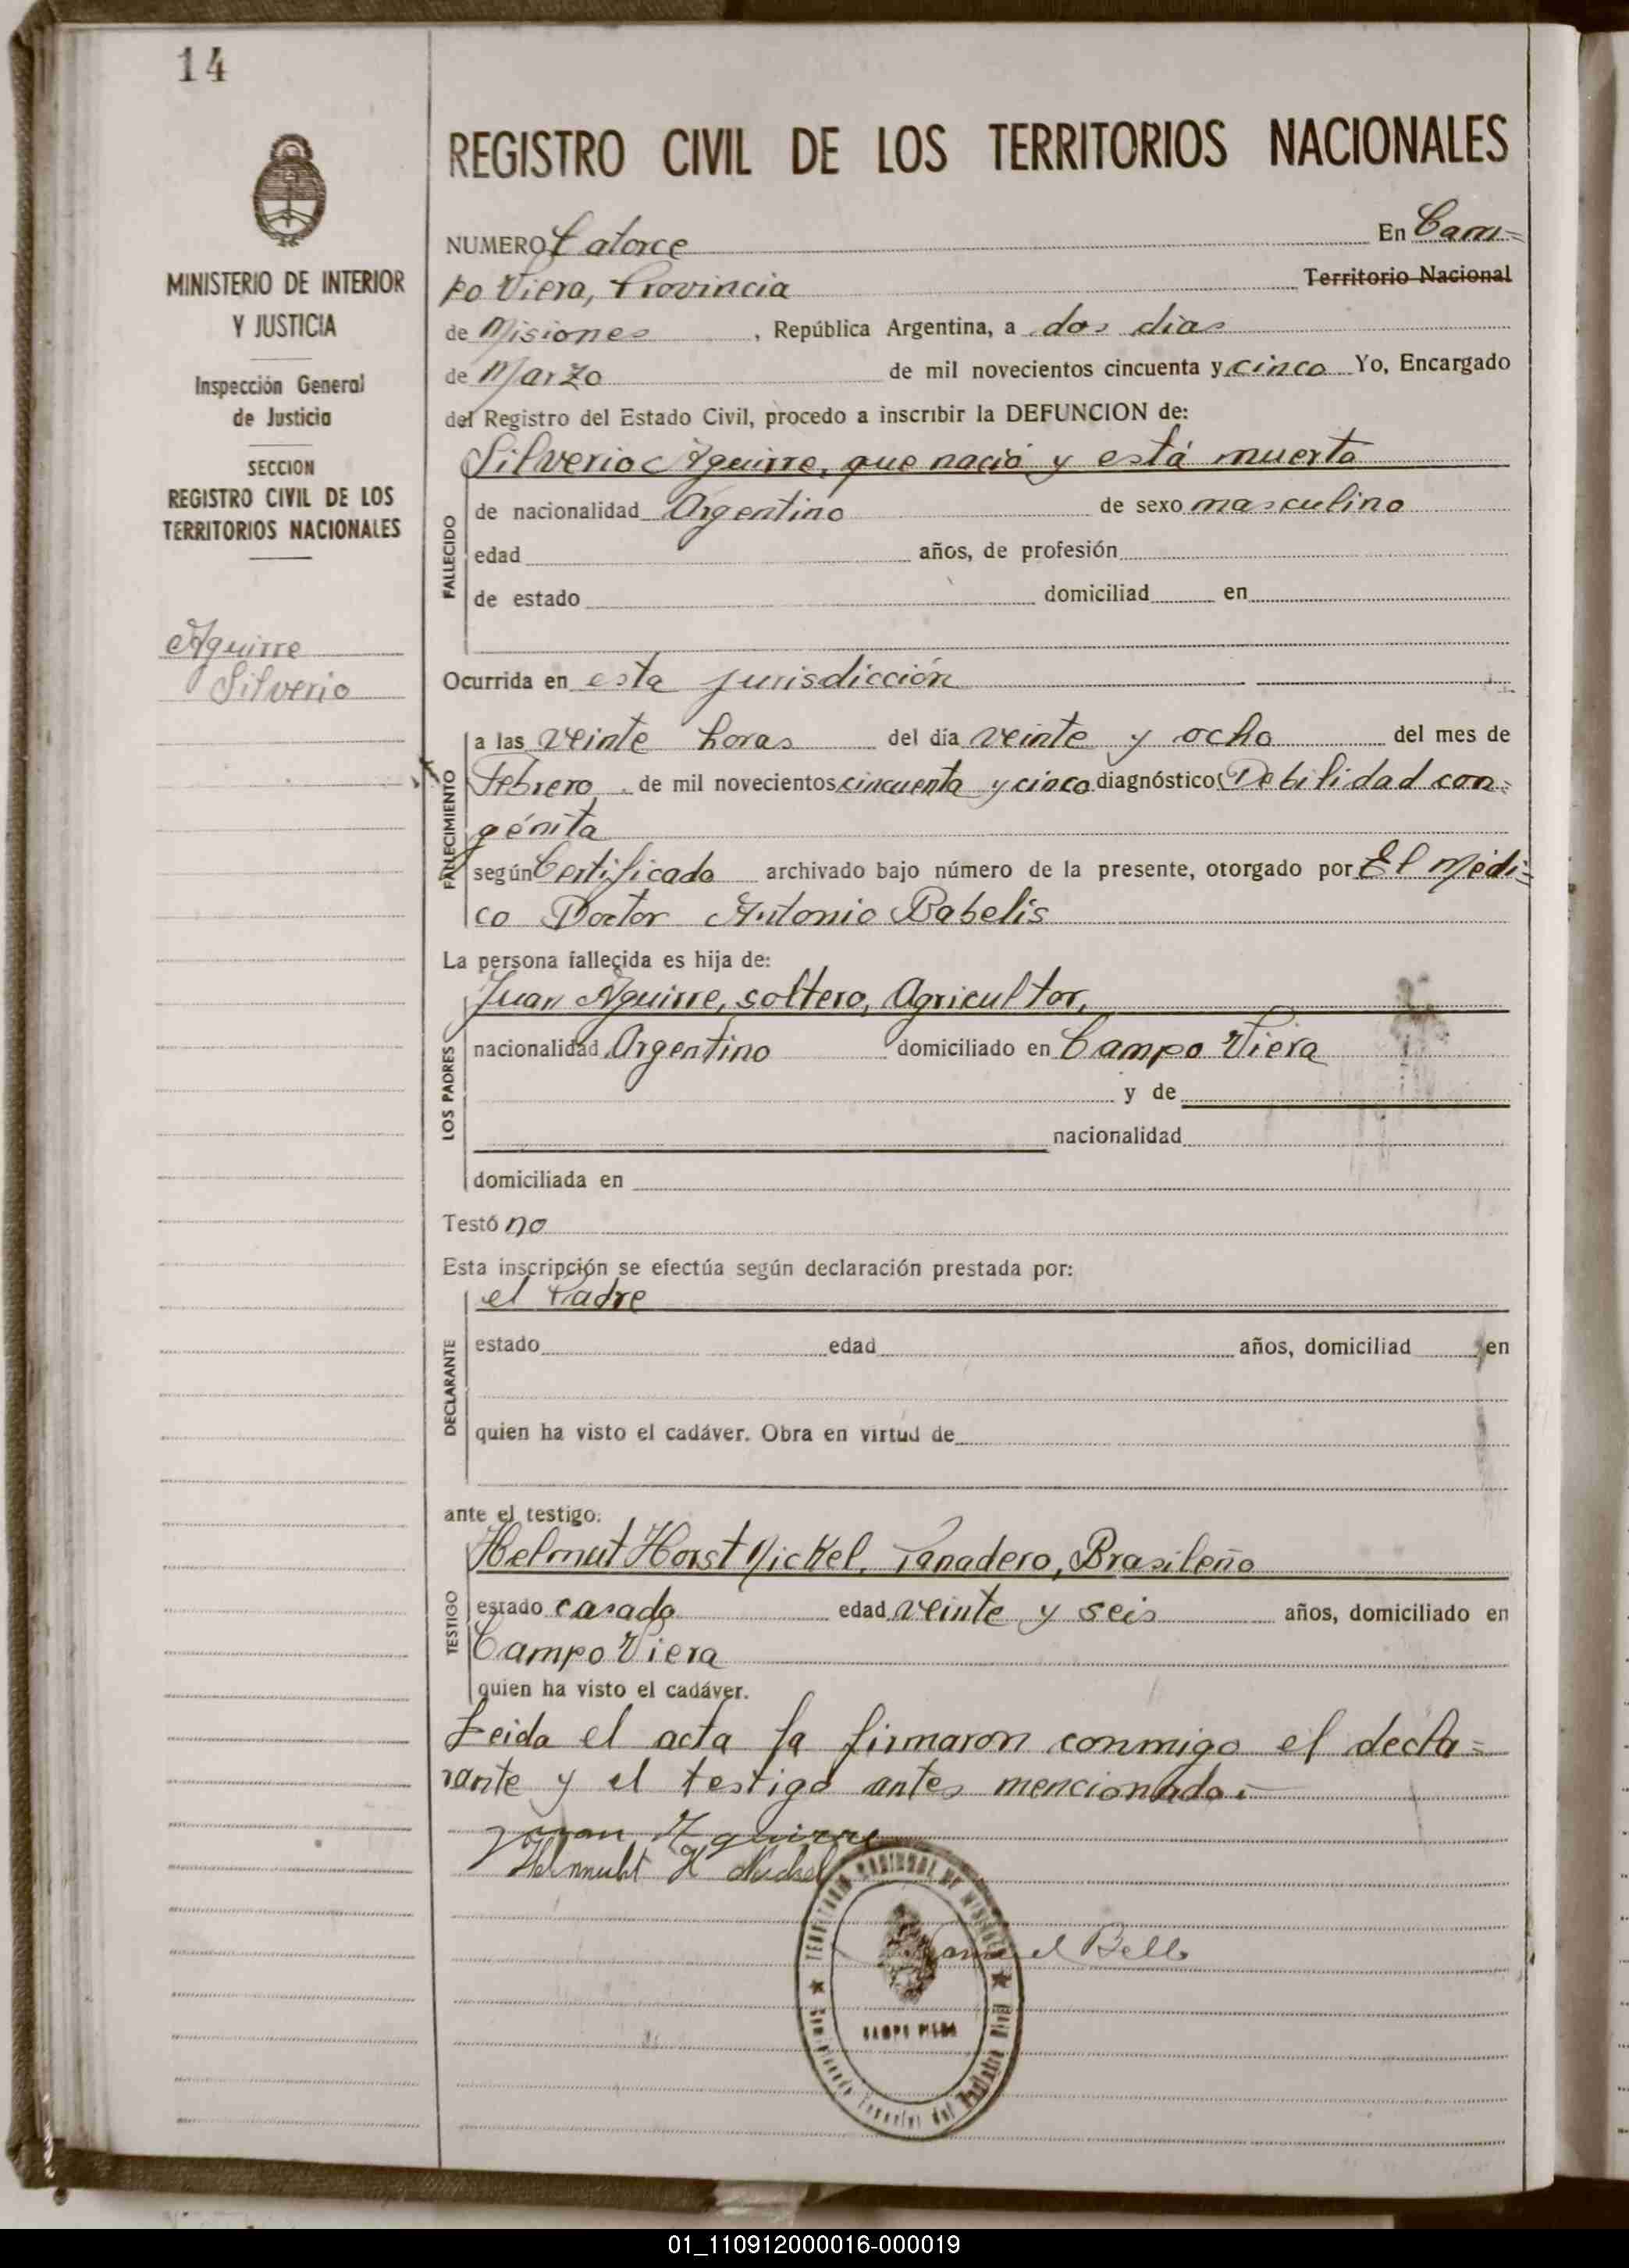 14
MINISTERIO DE INTERIOR
Y JUSTICIA
Inspección General
de Justicia
SECCION
REGISTRO CIVIL DE LOS
TERRITORIOS NACIONALES
Aguirre
Silverio
REGISTRO CIVIL DE LOS TERRITORIOS NACIONALES
NUMERO Catorce En Cam=
po Viera, Provincia Territorio Nacional
de Misiones, República Argentina, a dos dias
de Marzo de mil novecientos cincuenta y cinco Yo, Encargado
del Registro del Estado Civil, procedo a inscribir la DEFUNCION de:
Silverio Aguirre, que nació y está muerto
FALLECIDO
de nacionalidad Argentino de sexo masculino
edad años, de profesión
de estado domiciliad en
Ocurrida en esta jurisdicción
FALLECIMIENTO
a las veinte horas del día veinte y ocho del mes de
Febrero de mil novecientos cincuenta y cinco diagnóstico Debilidad con=
génita
según Certificado archivado bajo número de la presente, otorgado por El Médi=
co Doctor Antonio Babelis
La persona fallecida es hija de:
LOS PADRES
Juan Aguirre, soltero, Agricultor,
nacionalidad Argentino domiciliado en Campo Viera
y de
nacionalidad
domiciliada en
Testó no
Esta inscripción se efectúa según declaración prestada por:
DECLARANTE
el Padre
estado edad años, domiciliad en
quien ha visto el cadáver. Obra en virtud de
ante el testigo:
TESTIGO
Helmut Horst Nickel, Panadero, Brasileño
estado casado edad veinte y seis años, domiciliado en
Campo Viera
quien ha visto el cadáver.
Leida el acta la firmaron conmigo el decla=
rante y el testigo antes mencionado.
Juan Aguirre
H Nickel
Bello
TERRITORIO NACIONAL DE MISIONES
CAMPO VIERA
del Registro Civil
01_110912000016-000019